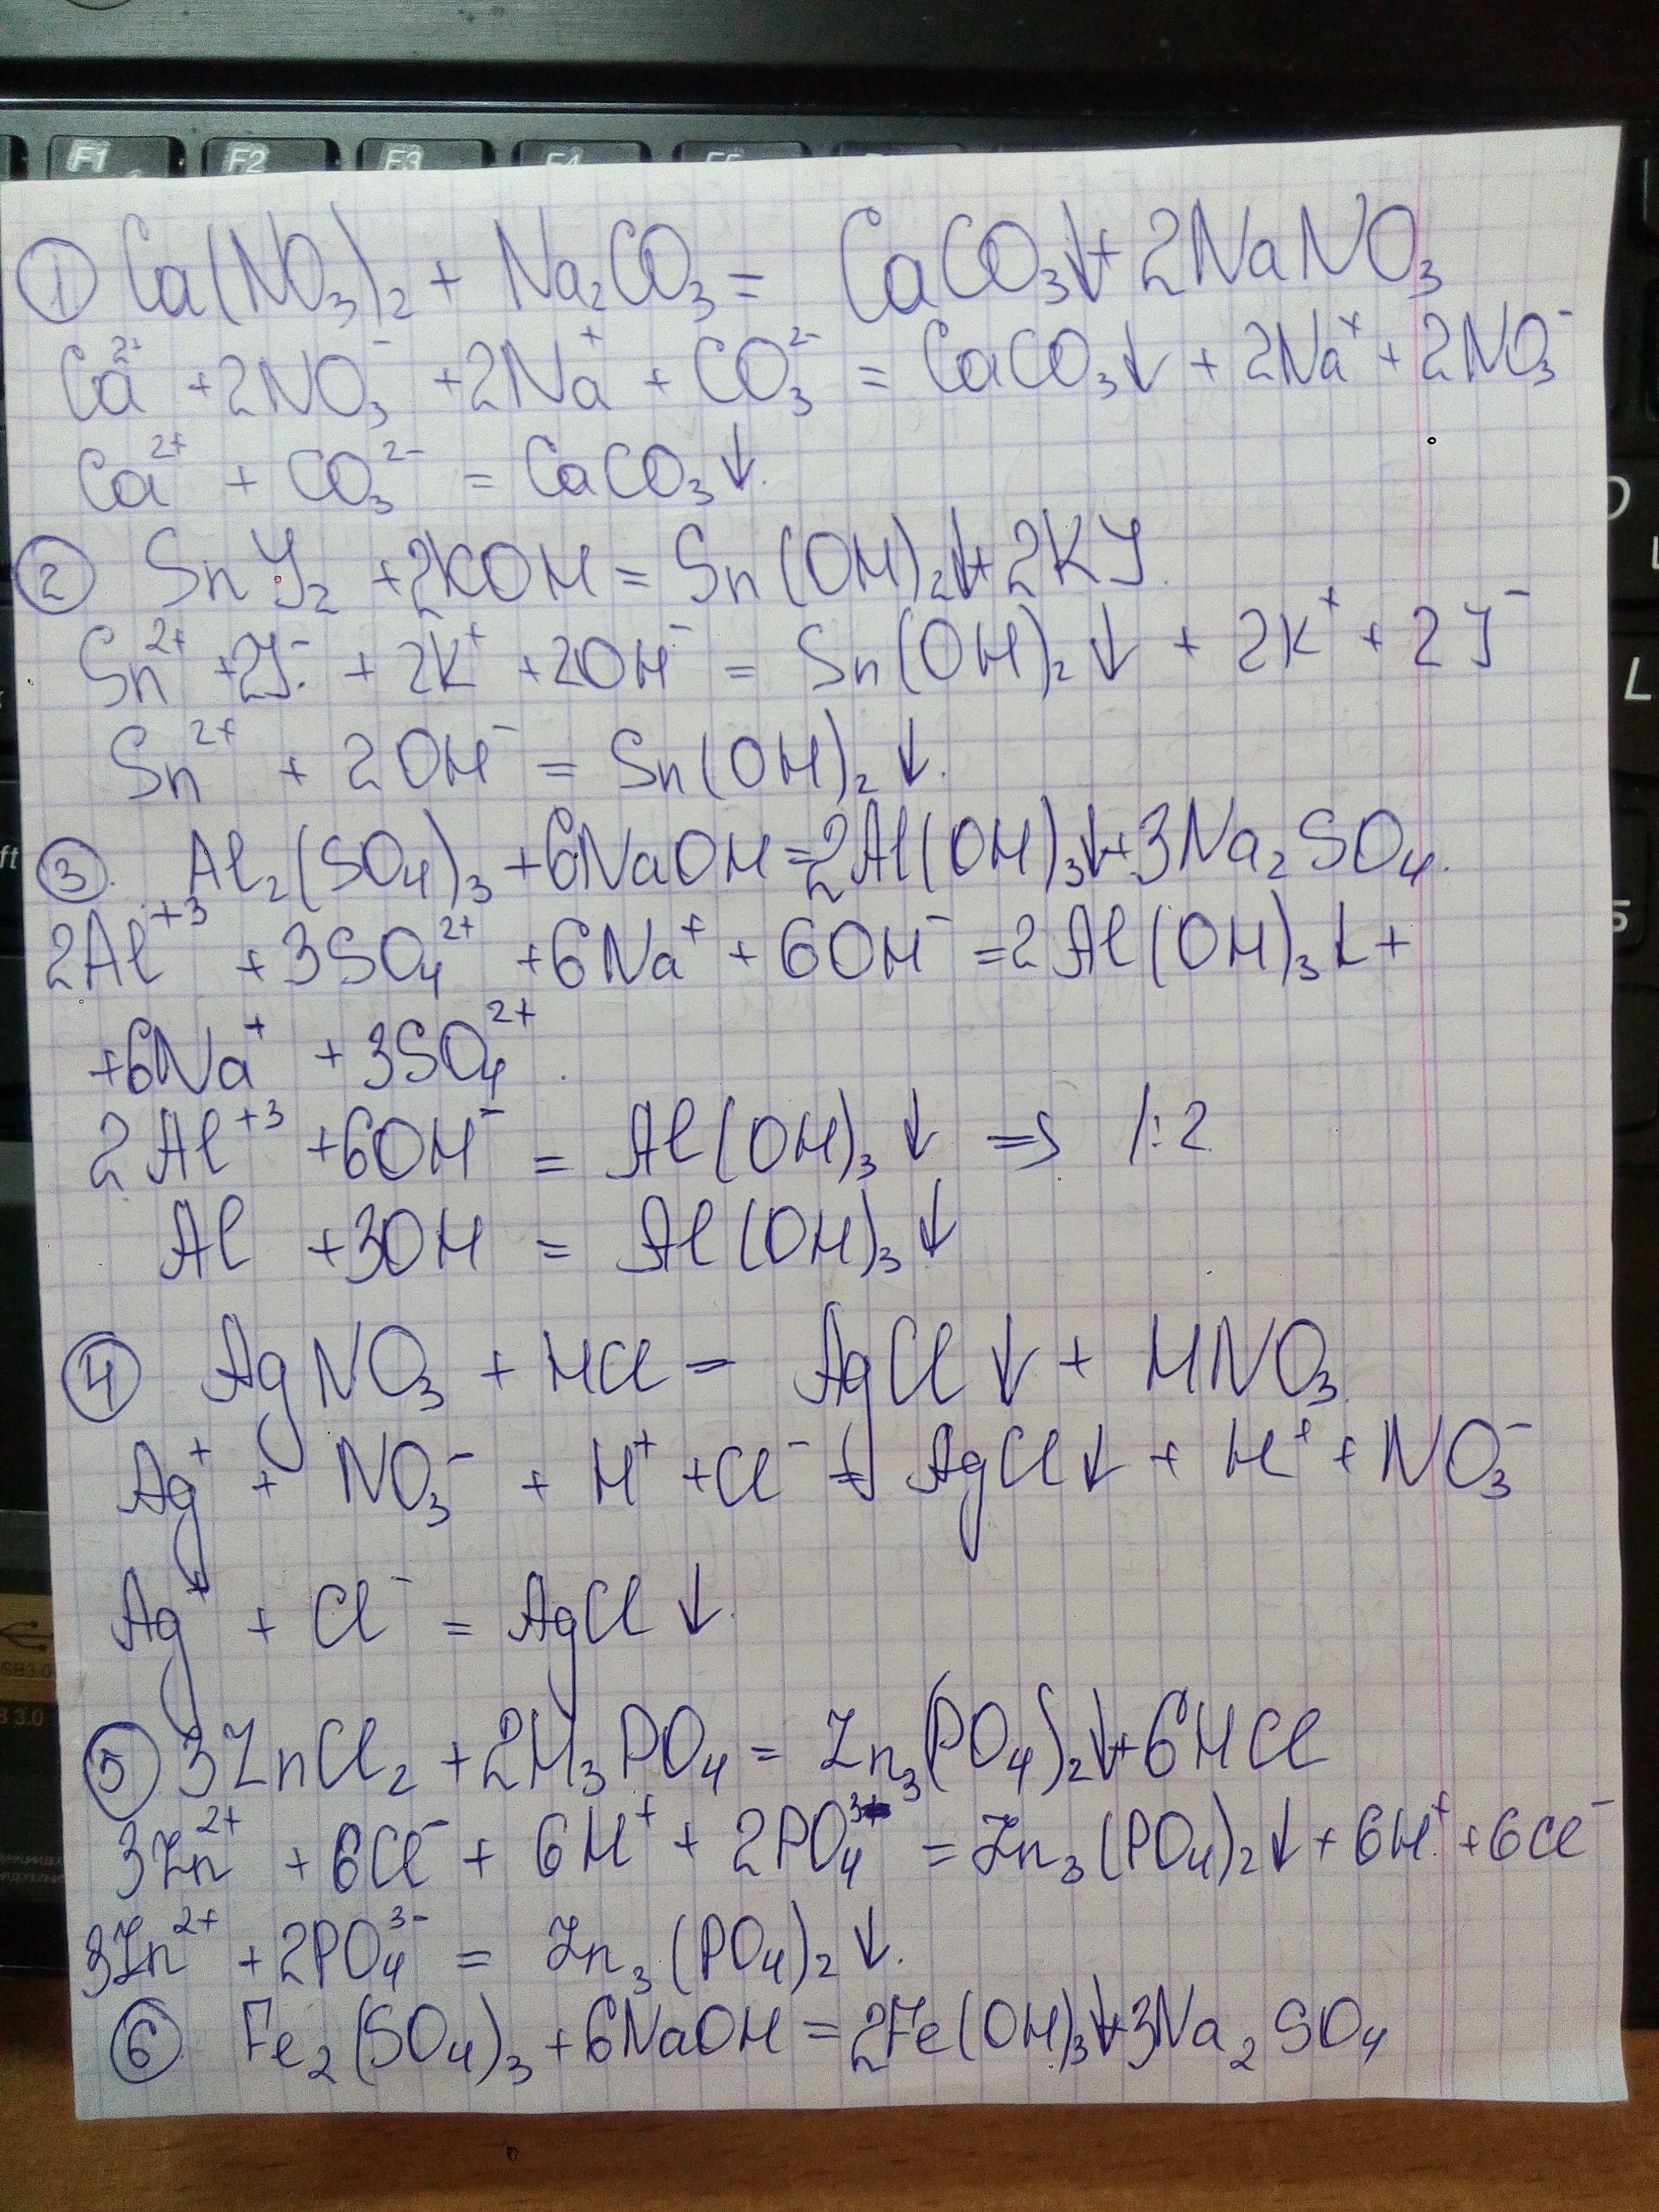 F1 F2 F3 F4 F5
① Ca(NO₃)₂ + Na₂CO₃ = CaCO₃↓ + 2NaNO₃
Ca²⁺ + 2NO₃⁻ + 2Na⁺ + CO₃²⁻ = CaCO₃↓ + 2Na⁺ + 2NO₃⁻
Ca²⁺ + CO₃²⁻ = CaCO₃↓.
② SnJ₂ + 2KOH = Sn(OH)₂↓ + 2KJ.
Sn²⁺ + 2J⁻ + 2K⁺ + 2OH⁻ = Sn(OH)₂↓ + 2K⁺ + 2J⁻
L
Sn²⁺ + 2OH⁻ = Sn(OH)₂↓.
③. Al₂(SO₄)₃ + 6NaOH = 2Al(OH)₃↓ + 3Na₂SO₄.
ft
2Al⁺³ + 3SO₄²⁺ + 6Na⁺ + 6OH⁻ = 2Al(OH)₃↓ +
+ 6Na⁺ + 3SO₄²⁺.
2Al⁺³ + 6OH⁻ = Al(OH)₃↓ => 1:2
Al + 3OH = Al(OH)₃↓
④ AgNO₃ + HCl = AgCl↓ + HNO₃.
Ag⁺ + NO₃⁻ + H⁺ + Cl⁻ = AgCl↓ + H⁺ + NO₃⁻
Ag⁺ + Cl⁻ = AgCl↓.
SB3.0
3.0
⑤ 3ZnCl₂ + 2H₃PO₄ = Zn₃(PO₄)₂↓ + 6HCl
3Zn²⁺ + 6Cl⁻ + 6H⁺ + 2PO₄³⁻ = Zn₃(PO₄)₂↓ + 6H⁺ + 6Cl⁻
3Zn²⁺ + 2PO₄³⁻ = Zn₃(PO₄)₂↓.
⑥ Fe₂(SO₄)₃ + 6NaOH = 2Fe(OH)₃↓ + 3Na₂SO₄